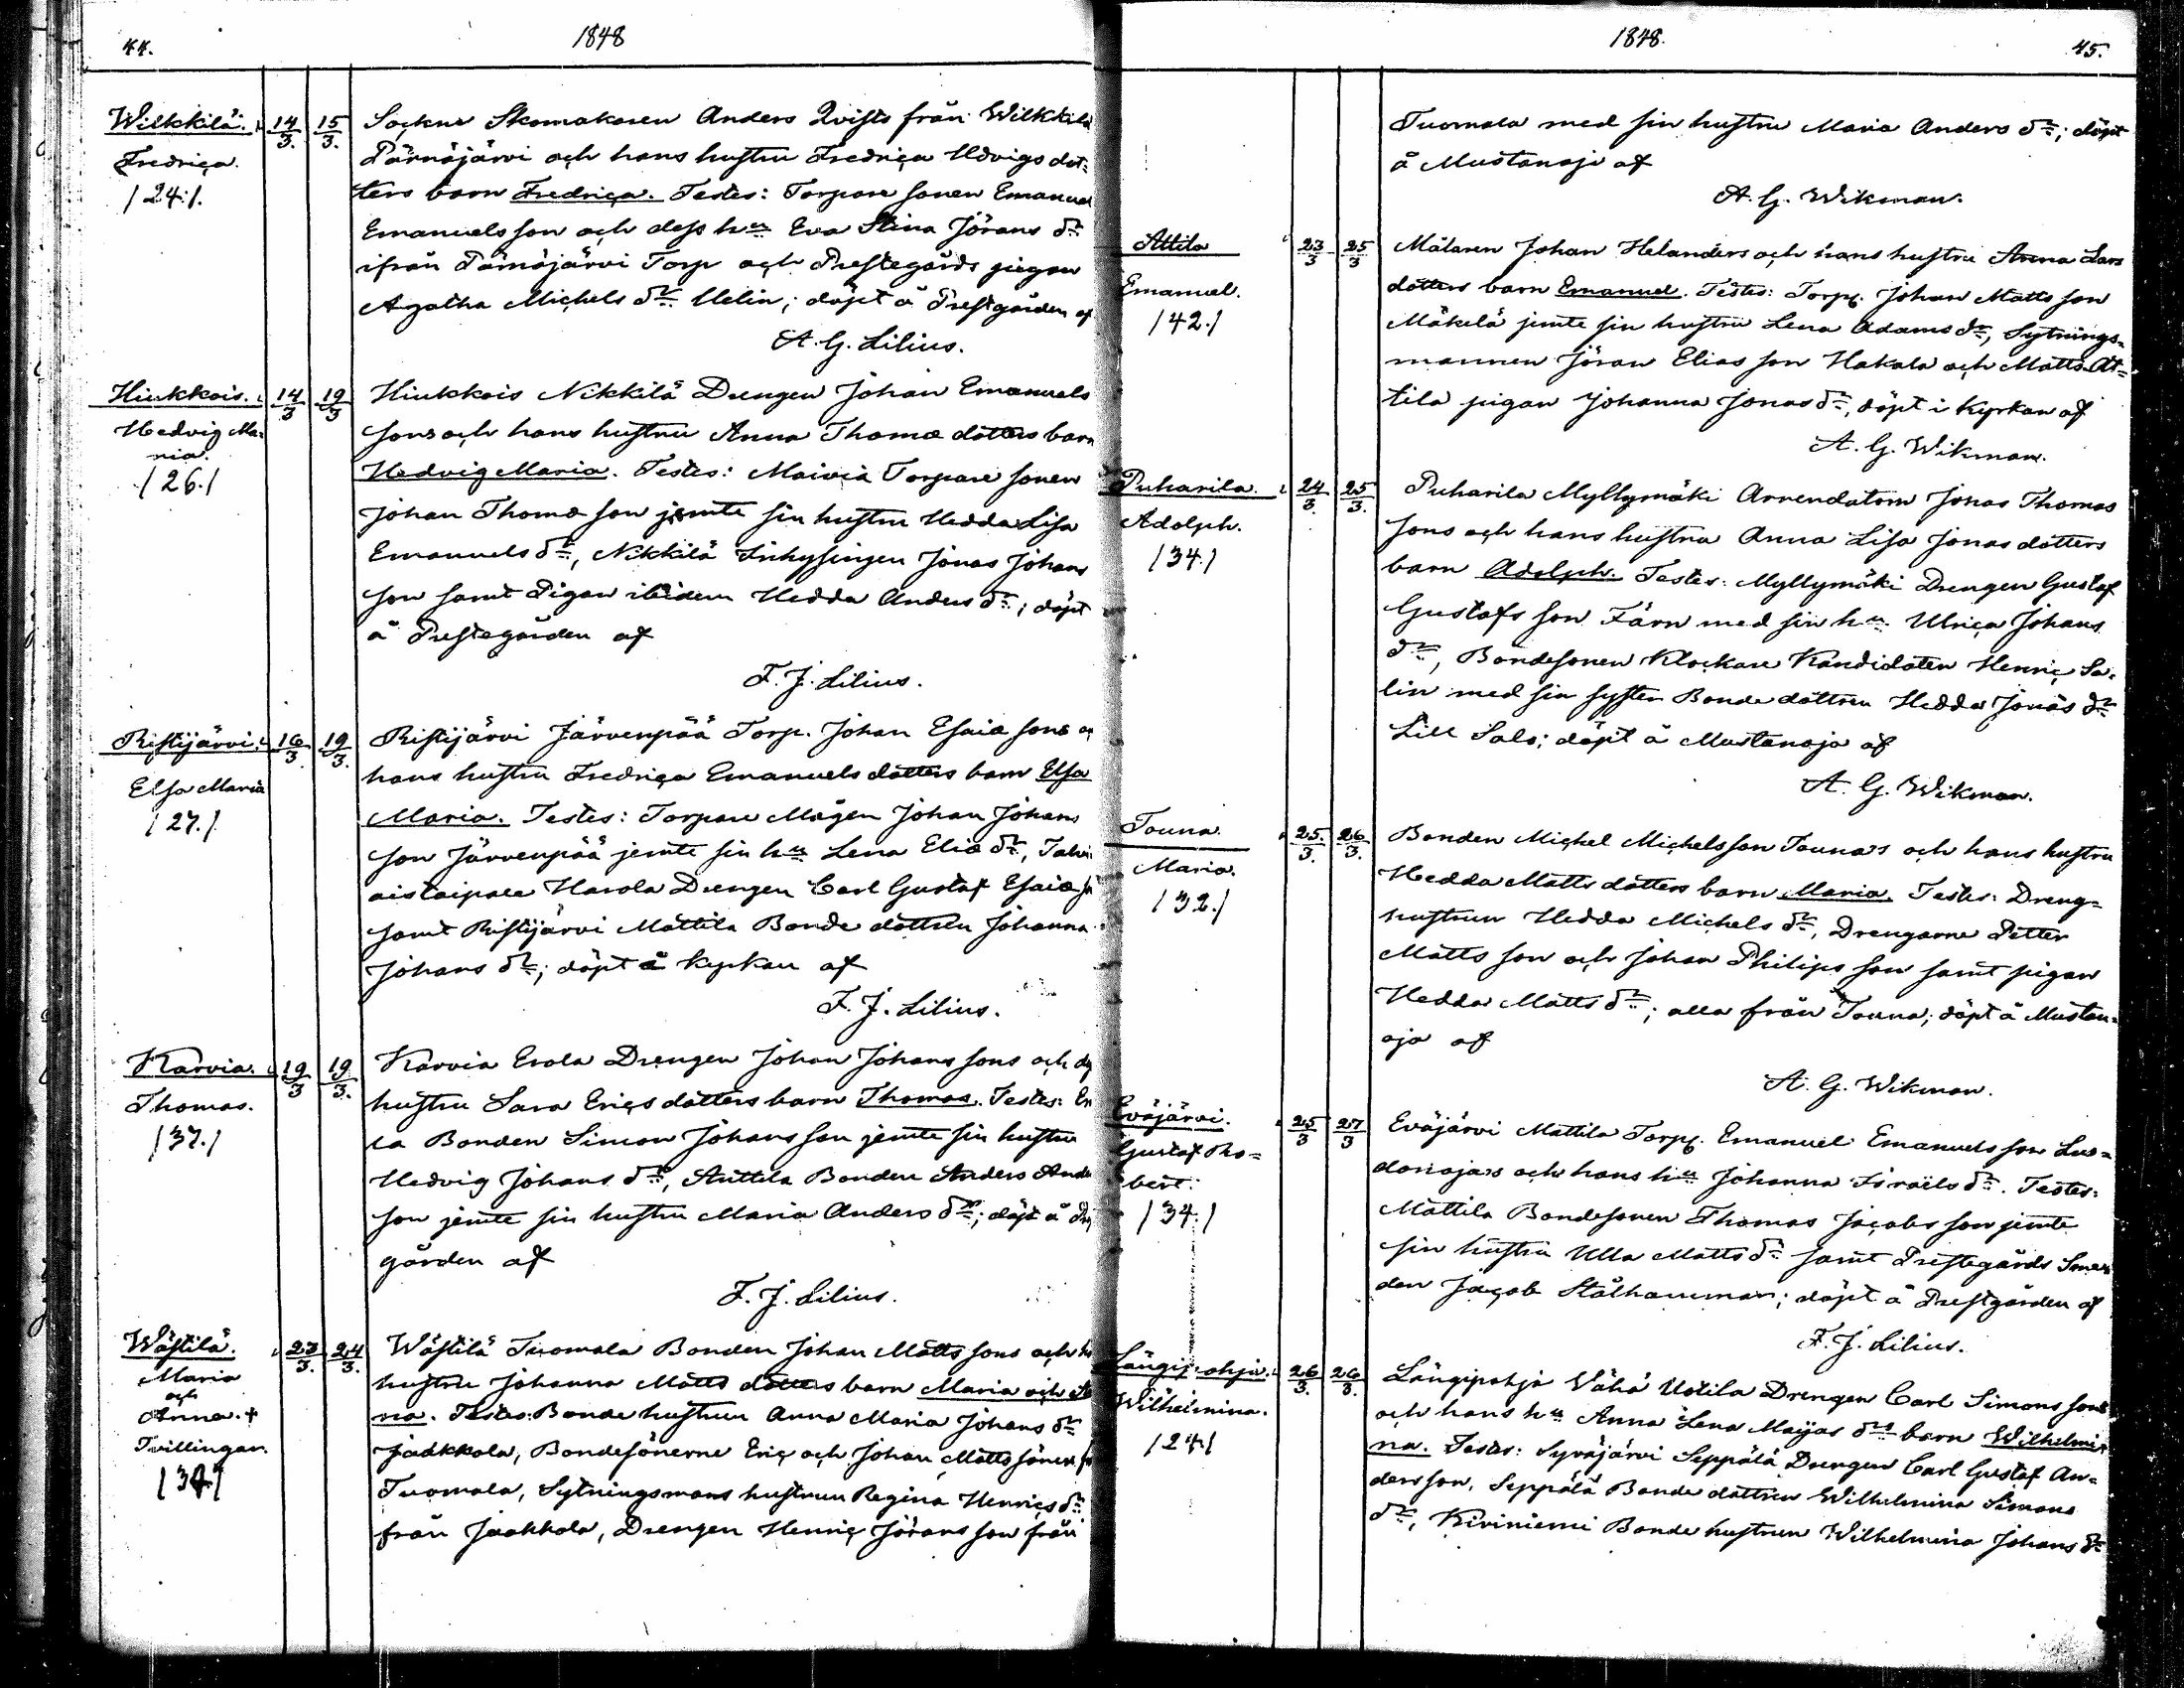 44.
1848
Wilkkilä.
14/3.
15/3.
Fredrica.
/24./.
Sockne Skomakaren Anders Qvists från Wilkkilä
Pärnäjärvi och hans hustru Fredrica Hdvigs dot=
ters barn Fredrica. Testes: Torpare sonen Emanuel
Emanuels son och dess hu Eva Stina Jörans dr
ifrån Pärnäjärvi Torp och Prestegårds pigan
Agatha Michels dr Helin; döpt å Prestgården af
A. G. Lilius.
Hiukkois.
14/3
19/3
Hedvig Ma=
ria.
/26./
Hiukkois Nikkilä Drengen Johan Emanuels
sons och hans hustru Anna Thomæ dotters barn
Hedvig Maria. Testes: Maivia Torpare sonen
Johan Thomæ son jemte sin hustru Hedda Lisa
Emanuels dr, Nikkilä Inhysingen Jonas Johans
son samt Pigan ibidem Hedda Anders dr; döpt
å Prestegården af
F. J. Lilius.
Ristijärvi.
16/3
19/3.
Elsa Maria
/27./
Ristijärvi Järvenpää Torp. Johan Esaiæ sons
hans hustru Fredrica Emanuels dotters barn Elsa
Maria. Testes: Torpare Mågen Johan Johans
son Järvenpää jemte sin hu Lena Eliæ dr,
aistaipale Harola Drengen Carl Gustaf Esaiæ
samt Ristijärvi Mattila Bonde dottren Johanna
Johans dr; döpt å Kyrkan af
F. J. Lilius.
Karvia.
19/3
19/3.
Thomas.
/37./
Karvia Erola Drengen Johan Johans sons och
hustru Sara Erics dotters barn Thomas. Testes: Er
la Bonden Simon Johans son jemte sin hustru
Hedvig Johans dr, Anttila Bonden Anders Ande
son jemte sin hustru Maria Anders dr; döpt å
gården af
F. J. Lilius.
Wästilä.
23/3.
24/3.
Maria
och
Anna. +
Tvillingar.
/34./
Wästilä Tuomala Bonden Johan Matts sons och
hustru Johanna Matts dotters barn Maria och
na. Testes: Bonde hustrun Anna Maria Johans dr
Jaakkola, Bondesönerne Eric och Johan Matts söner
Tuomala, Sytningsmans hustrun Regina Henrics dr
från Jaakkola, Drengen Henric Jörans son från
1848.
45.
Tuomala med sin hustru Maria Anders dr; döpt
å Mustanoja af
A. G. Wikman.
Attila
23/3
25/3
Emanuel.
/42./
Målaren Johan Helanders och hans hustru Anna Lars
dotters barn Emanuel. Testes: Torp. Johan Matts son
Mäkelä jemte sin hustru Lena Adams dr, Sytnings=
mannen Jöran Elias son Hakala och Matts At=
tila pigan Johanna Jonas dr, döpt i Kyrkan af
A. G. Wikman.
Puharila.
24/3.
25/3.
Adolph.
/34./
Puharila Myllymäki Arrendatorn Jonas Thomas
sons och hans hustru Anna Lisa Jonas dotters
barn Adolph. Testes: Myllymäki Drengen Gustaf
Gustafs son Färn med sin hu Ulrica Johans
dr, Bondesonen Klockare Kandidaten Henric Sa=
lin med sin syster Bonde dottren Hedda Jonas dr
Lill Salo; döpt å Mustanoja af
A. G. Wikman.
Touna.
25/3.
26/3.
Maria.
/32./
Bonden Michel Michelsson Touna's och hans hustru
Hedda Matts dotters barn Maria. Testes: Dreng=
hustrun Hedda Michels dr, Drengarne Petter
Matts son och Johan Philips son samt pigan
Hedda Matts dr; alla från Touna; döpt å Mustan=
oja af
A. G. Wikman.
Eväjärvi.
25/3
27/3
Gustaf Ro=
bert.
/34./
Eväjärvi Mattila Torp. Emanuel Emanuels son Luo=
danojas och hans hu Johanna Israëls dr. Testes:
Mattila Bondesonen Thomas Jacobs son jemte
sin hustru Ulla Matts dr samt Prestegårds Sme=
den Jacob Stålhammar; döpt å Prestgården af
F. J. Lilius.
Längipohja.
26/3.
26/3.
Wilhelmina.
/24./
Längipohja Vähä Uotila Drengen Carl Simons sons
och hans hu Anna Lena Maijas drs barn Wilhelmi=
na. Testes: Syväjärvi Seppälä Drengen Carl Gustaf An=
ders son, Seppälä Bonde dottren Wilhelmina Simons
dr, Kiviniemi Bonde hustrun Wilhelmina Johans dr